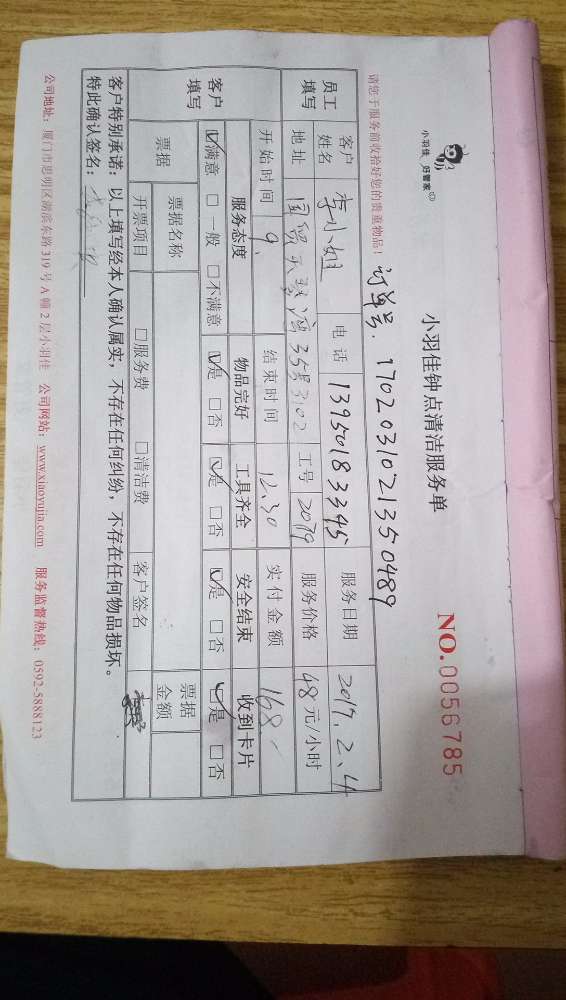 小羽佳 好管家
小羽佳钟点清洁服务单
NO.0056785
请您于服务前收拾好您的贵重物品!
订单号. 1702031021350489
员工填写 客户姓名 李小姐 电话 13950183345 服务日期 2017.2.4
地址 国贸天琴湾35号3102 工号 2079 服务价格 48元/小时
客户填写 开始时间 9. 结束时间 12.30 实付金额 168.-
服务态度 物品完好 工具齐全 安全结束 收到卡片
☑满意 □一般 □不满意 ☑是 □否 ☑是 □否 ☑是 □否 ☑是 □否
票据 票据名称 票据金额
开票项目 □服务费 □清洁费 客户签名
客户特别承诺:以上填写经本人确认属实,不存在任何纠纷,不存在任何物品损坏。
特此确认签名:
公司地址:厦门市思明区湖滨东路319号A幢2层小羽佳 公司网站:www.xiaoyujia.com 服务监督热线:0592-5888123